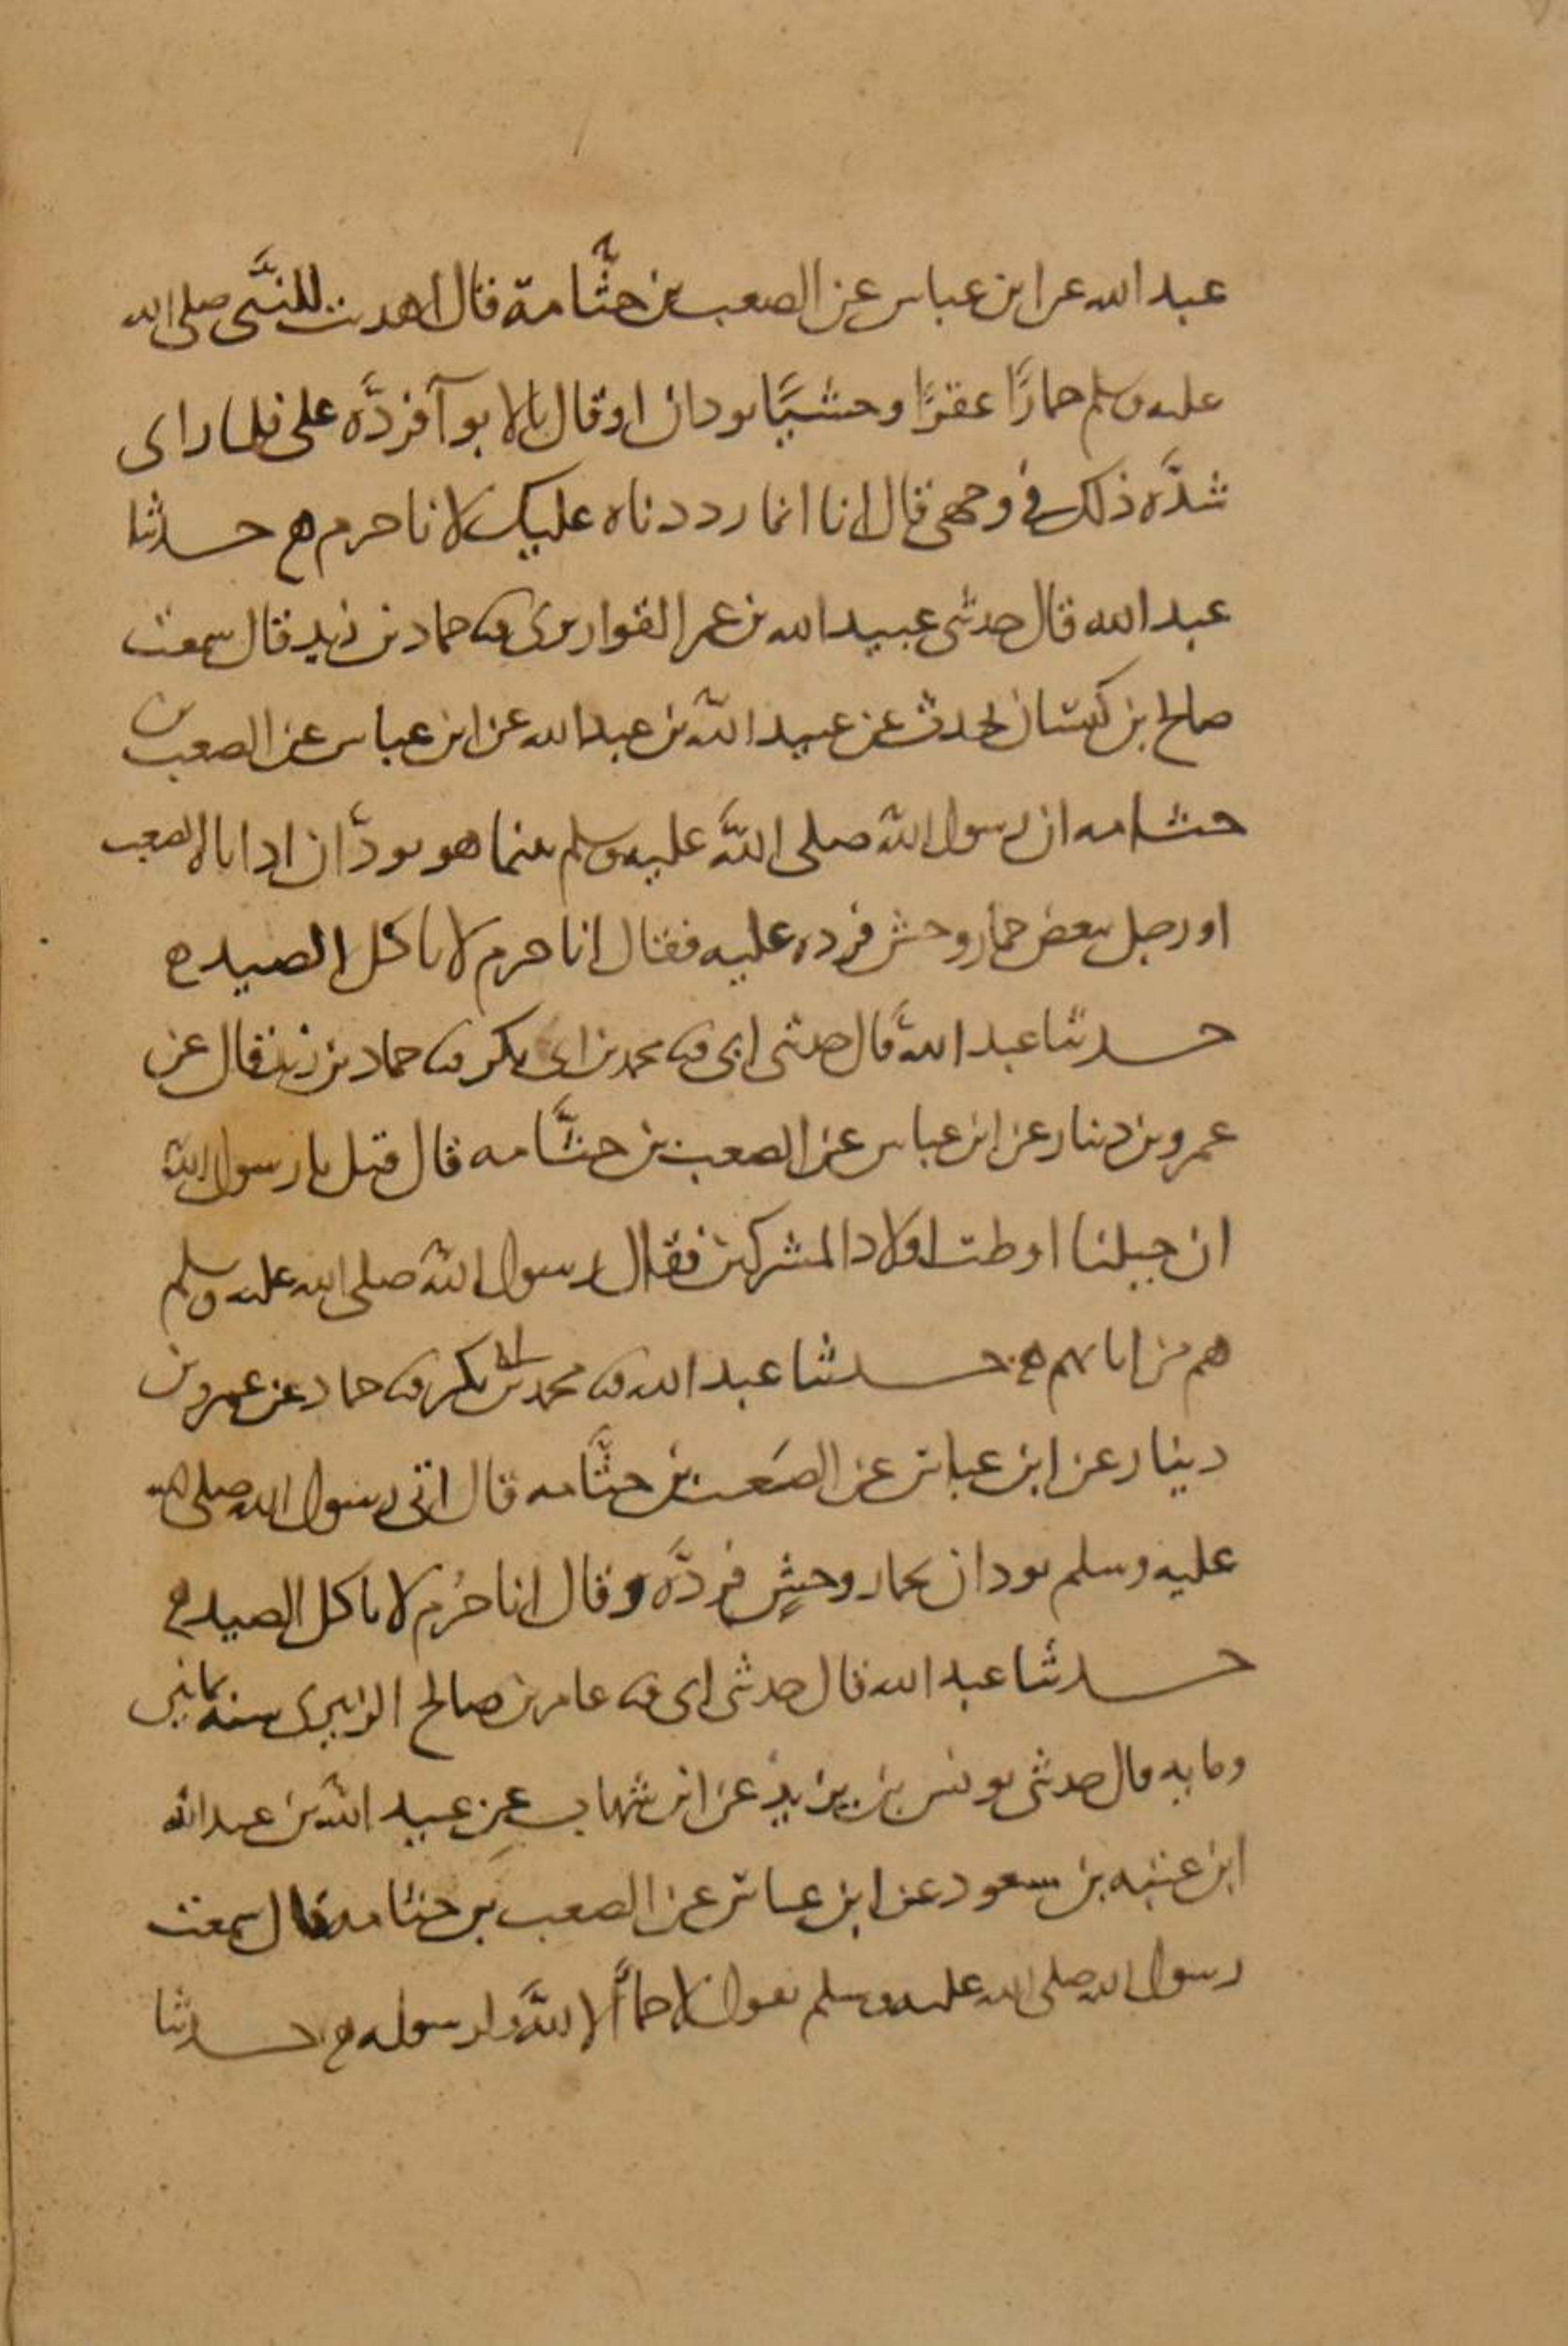 عبد الله عن ابن عباس عن الصعب بن جثَّامة قال اهديت للنَّبي صلى الله
عليه وسلم حمارًا عقرًا وحشيًّا بودان او قال بالابوآ فردَّه علي فلما راى
شدَّه ذلك في وجهي قال انا انما رددناه عليك لانا حرم ه حدثنا
عبد الله قال حدثني عبيد الله بن عمر القواريرى ثنا حماد بن زيد قال سمعت
صالح ابن كيسان يحدث عن عبيد الله بن عبد الله عن ابن عباس عن الصعب بن
جثامه ان رسول الله صلى اللَّه عليه وسلم بينما هو بودَّان اذ اتاه الصعب
او رجل ببعض حمار وحش فرده عليه فقال انا حرم لا ناكل الصيد ه
حدثنا عبد اللَّه قال حدثني ابى ثنا محمد بن ابى بكر ثنا حماد بن زيد قال عن
عمرو بن دينار عن ابن عباس عن الصعب بن جثَّامه قال قيل يا رسول الله
ان خيلنا اوطت اولاد المشركين فقال رسول الله صلى الله عليه وسلم
هم من ابايهم ه حدثنا عبد الله ثنا محمد بن ابى بكر ثنا حماد عن عمرو بن
دينار عن ابن عباس عن الصَعب بن جثَّامه قال اتى رسول الله صلى الله
عليه وسلم بودان بحمار وحشٍ فردَّه وقال انا حُرم لا ناكل الصيد ه
حدثنا عبد الله قال حدثني ابى ثنا عامر بن صالح الزبيرى سنه ثمانين
ومايه قال حدثني يونس بن يزيد عن ابن شهاب عن عبيد الله بن عبد الله
ابن عتبه بن مسعود عن ابن عباس عن الصعب بن جثامه قال سمعت
رسول الله صلى الله عليه وسلم يقول لا حمآ الا للَّه ولرسوله ه حدثنا